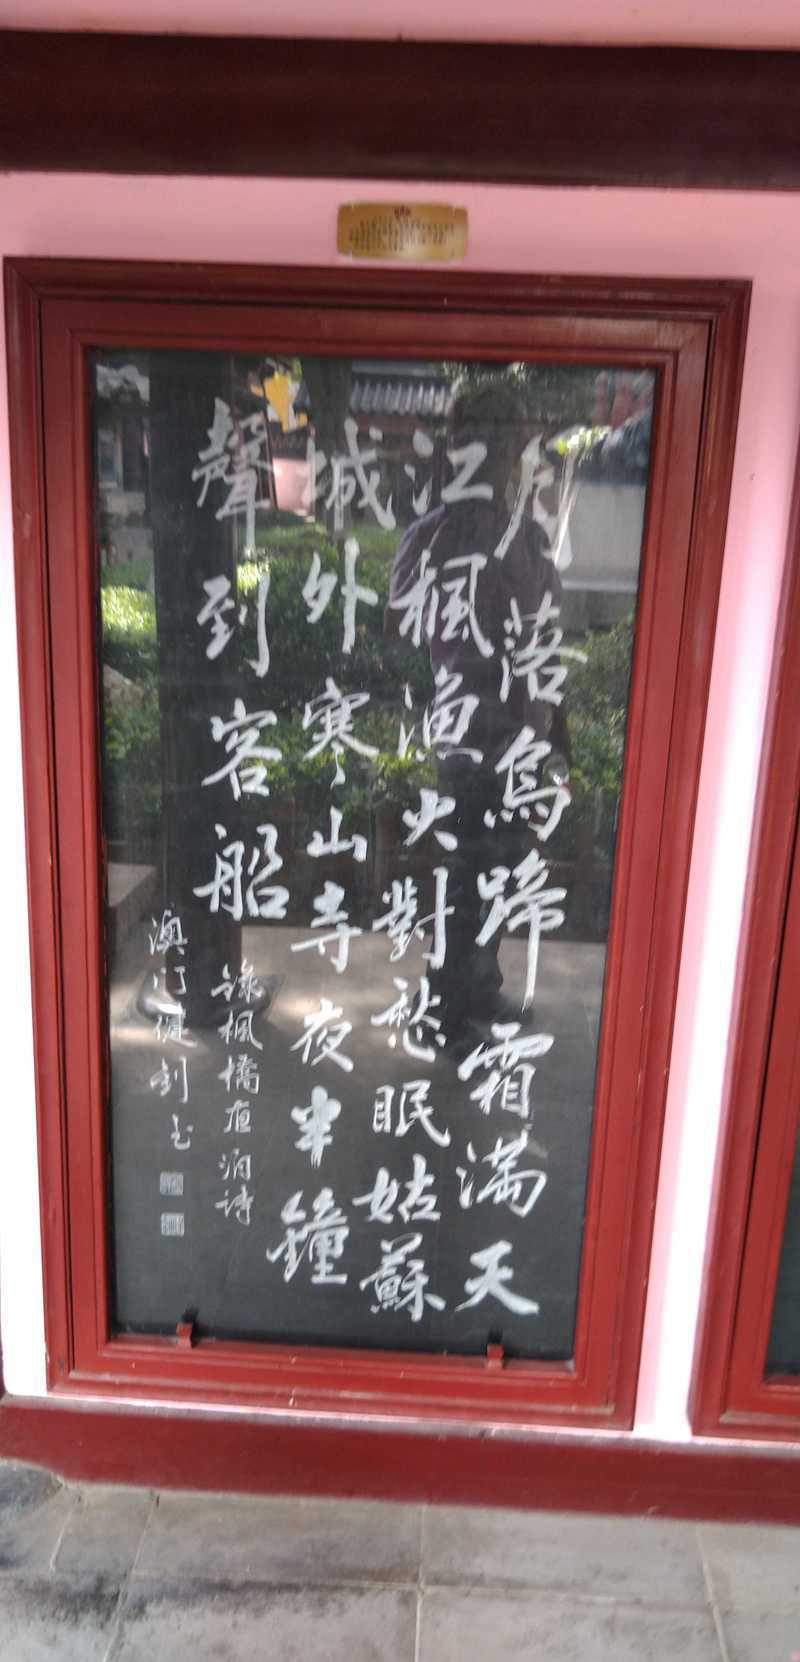 月落烏蹄霜滿天
江楓漁火對愁眠姑蘇
城外寒山寺夜半鐘
聲到客船
錄楓橋夜泊詩
澳门健书